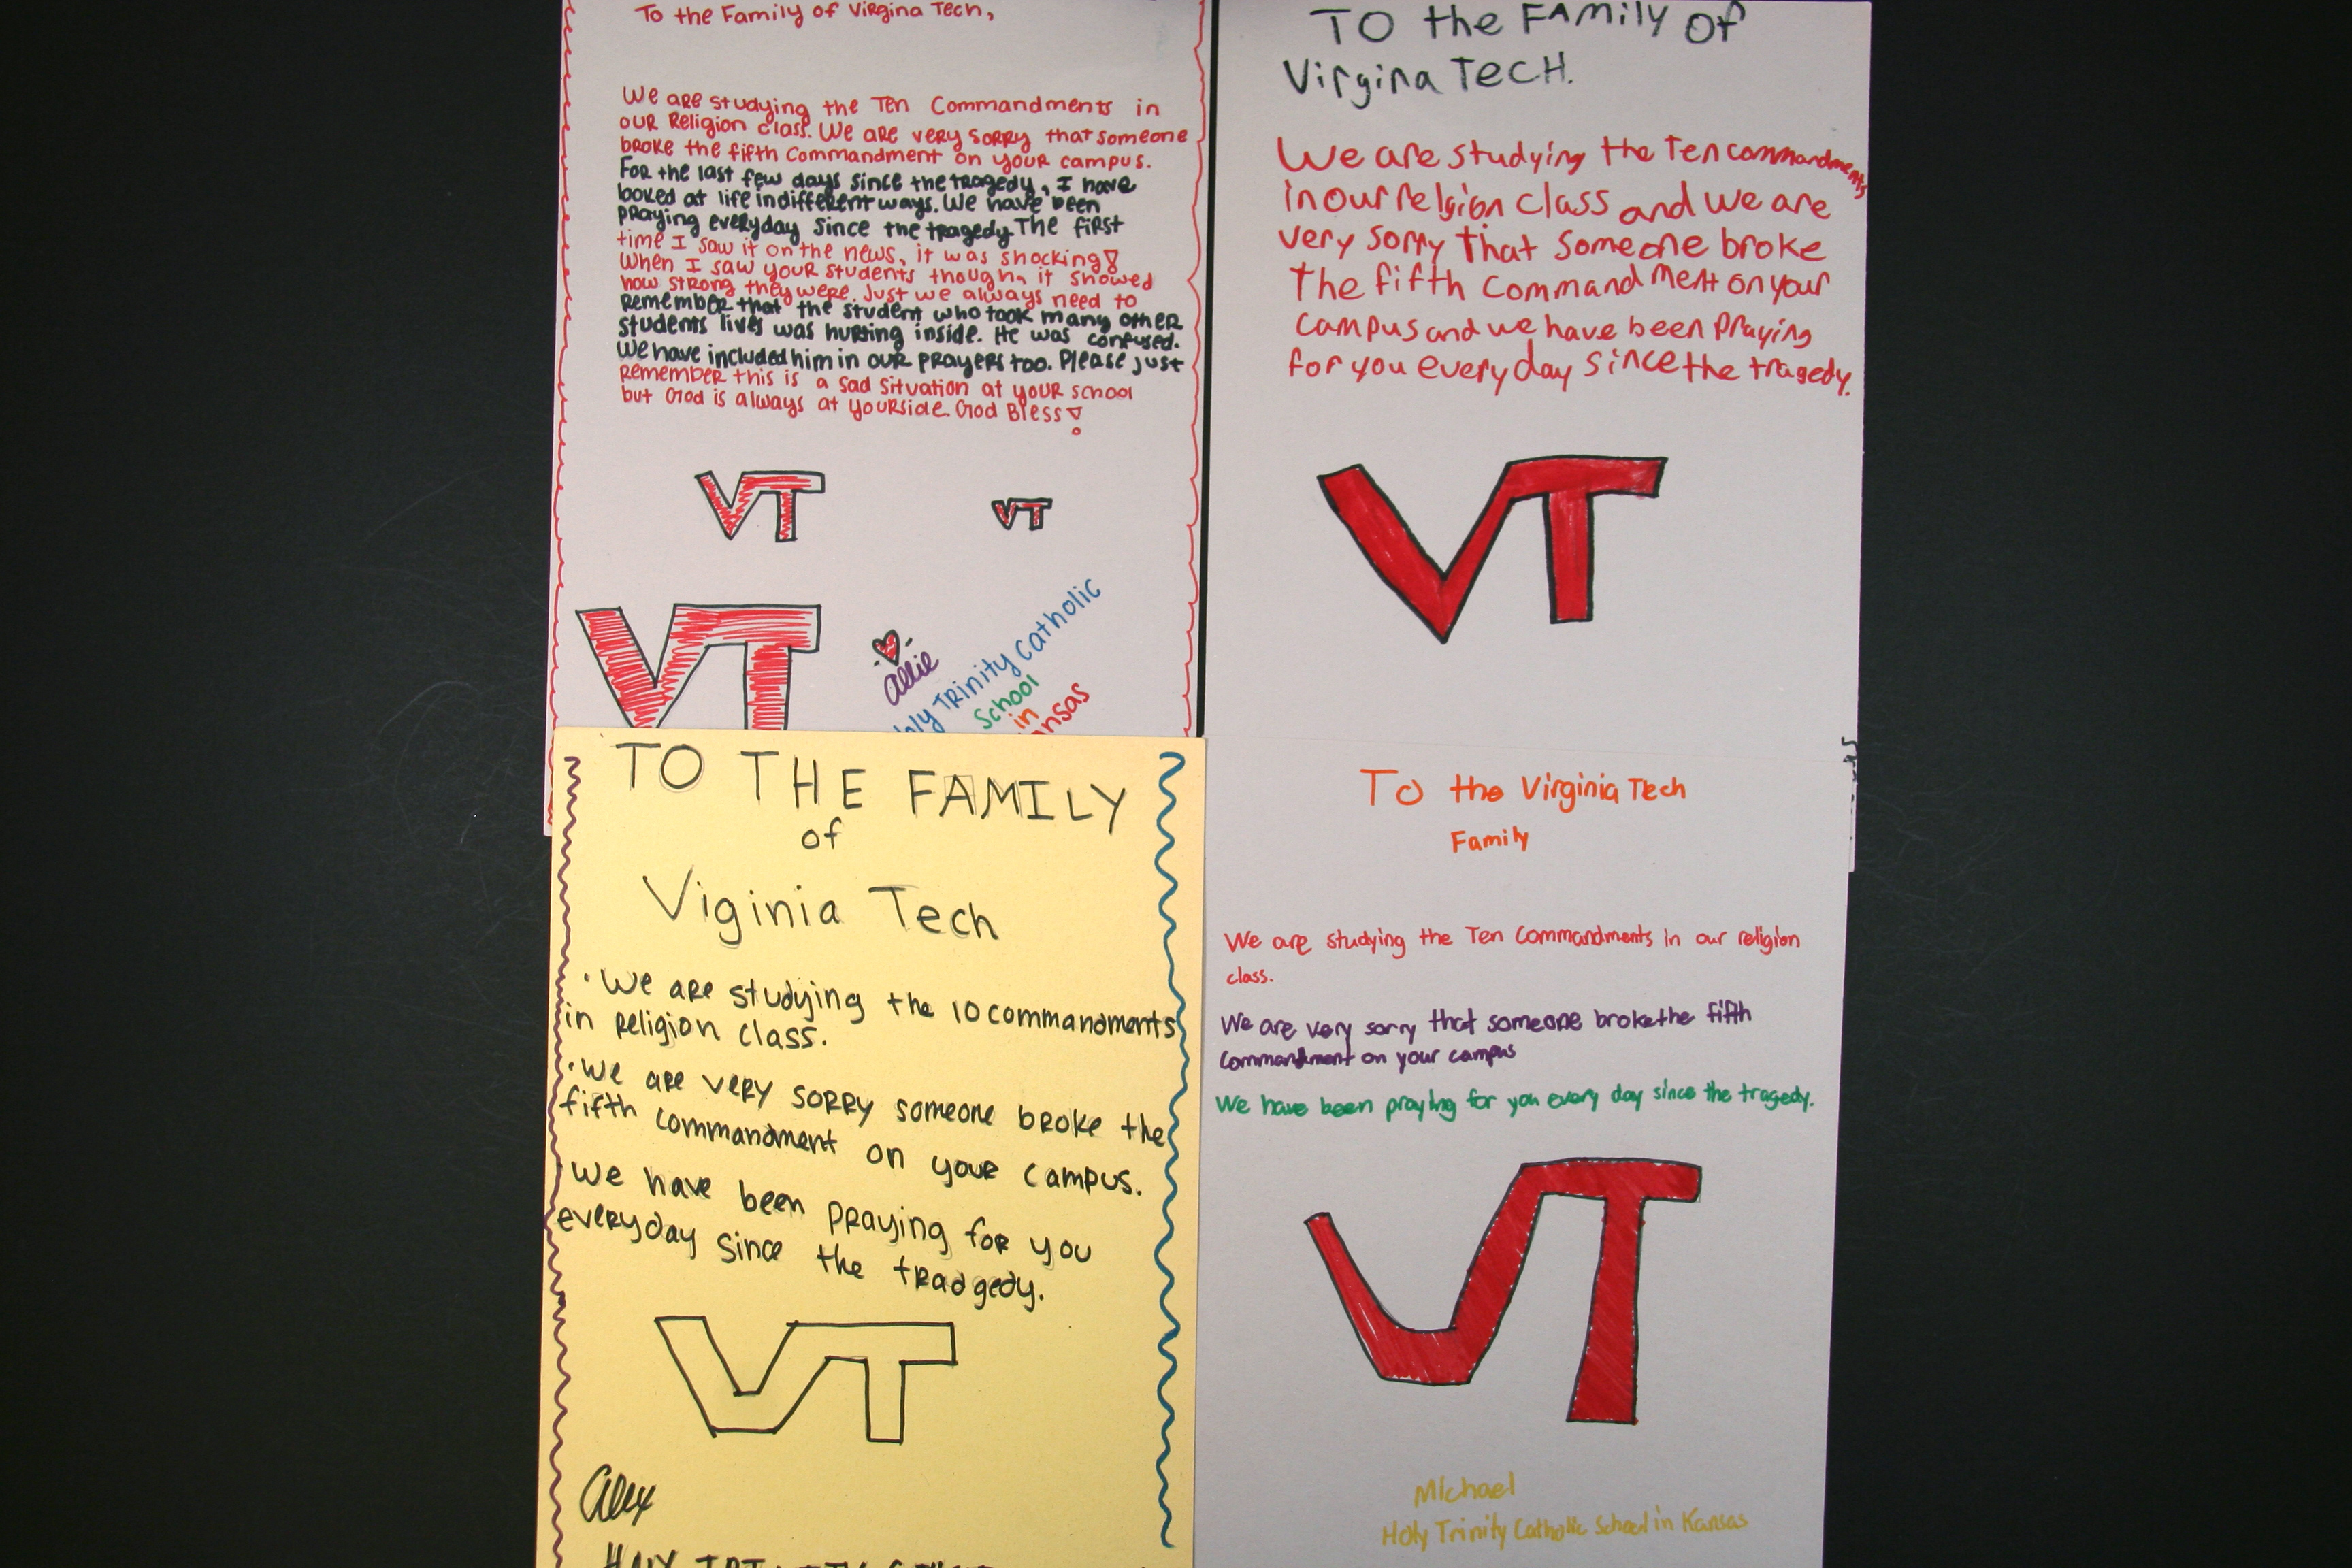 To the Family of Virgina Tech,
We are studying the Ten Commandments in
our Religion class. We are very sorry that someone
broke the fifth Commandment on your campus.
For the last few days since the tragedy, I have
looked at life in different ways. We have been
praying everyday since the tragedy. The first
time I saw it on the news, it was shocking!
When I saw your students though, it showed
how strong they were. Just we always need to
remember that the student who took many other
students lives was hurting inside. He was confused.
We have included him in our prayers too. Please just
remember this is a sad situation at your school
but God is always at yourside. God Bless!
VT
VT
VT
allie
Holy Trinity Catholic
School
in
Kansas
TO the FAMily Of
Virgina TecH.
We are studying the Ten commandments
in our relgion class and we are
very sorry that someone broke
the fifth commandment on your
campus and we have been praying
for you everyday since the tragedy.
VT
TO THE FAMILY
of
Viginia Tech
· We are studying the 10 commandments
in religion class.
· We are very sorry someone broke the
fifth commandment on your campus.
We have been praying for you
everyday since the tradgedy.
VT
alex
To the Virginia Tech
Family
We are studying the Ten Commandments in our religion
class.
We are very sorry that someone broke the fifth
Commandment on your campus
We have been praying for you every day since the tragedy.
VT
Michael
Holy Trinity Catholic School in Kansas